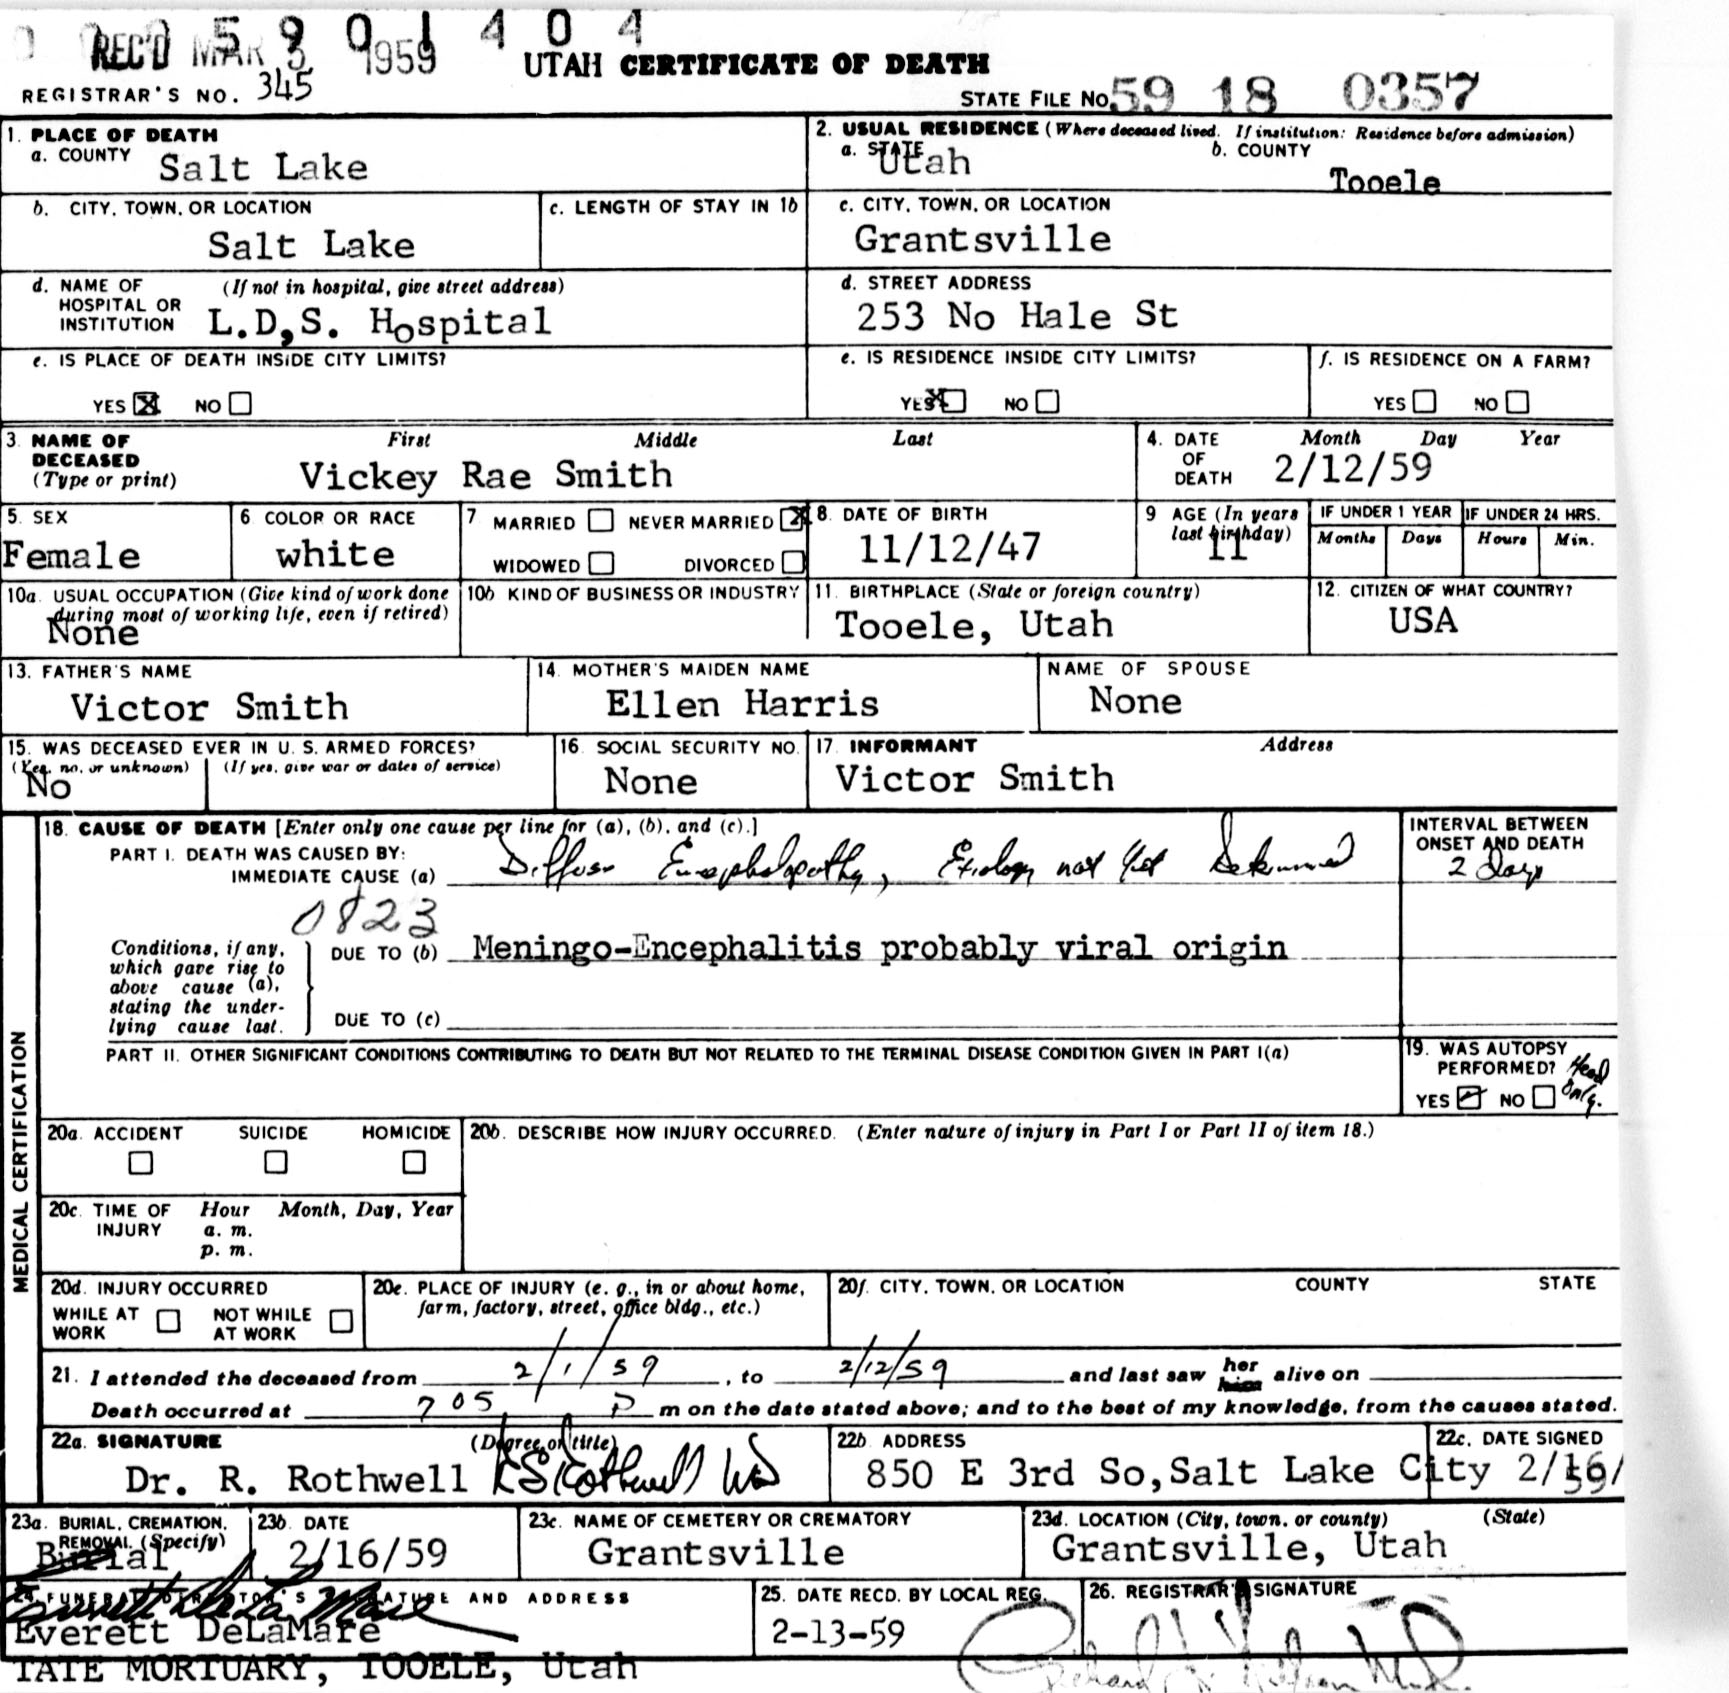 REC'D MAR 3 1959
5 9 0 1 4 0 4
UTAH CERTIFICATE OF DEATH
REGISTRAR'S NO. 345
STATE FILE No. 59 18 0357
1. PLACE OF DEATH
a. COUNTY Salt Lake
2. USUAL RESIDENCE (Where deceased lived. If institution: Residence before admission)
a. STATE Utah b. COUNTY Tooele
b. CITY, TOWN, OR LOCATION Salt Lake
c. LENGTH OF STAY IN 1b
c. CITY, TOWN, OR LOCATION Grantsville
d. NAME OF HOSPITAL OR INSTITUTION (If not in hospital, give street address) L.D,S. Hospital
d. STREET ADDRESS 253 No Hale St
e. IS PLACE OF DEATH INSIDE CITY LIMITS?
YES X NO
e. IS RESIDENCE INSIDE CITY LIMITS?
YES X NO
f. IS RESIDENCE ON A FARM?
YES NO
3. NAME OF DECEASED (Type or print) First Middle Last
Vickey Rae Smith
4. DATE OF DEATH Month Day Year
2/12/59
5. SEX Female
6. COLOR OR RACE white
7. MARRIED NEVER MARRIED X
WIDOWED DIVORCED
8. DATE OF BIRTH 11/12/47
9 AGE (In years last birthday) 11
IF UNDER 1 YEAR Months Days
IF UNDER 24 HRS. Hours Min.
10a. USUAL OCCUPATION (Give kind of work done during most of working life, even if retired) None
10b KIND OF BUSINESS OR INDUSTRY
11. BIRTHPLACE (State or foreign country) Tooele, Utah
12. CITIZEN OF WHAT COUNTRY? USA
13. FATHER'S NAME Victor Smith
14. MOTHER'S MAIDEN NAME Ellen Harris
NAME OF SPOUSE None
15. WAS DECEASED EVER IN U. S. ARMED FORCES?
(Yes, no, or unknown) (If yes, give war or dates of service)
No
16. SOCIAL SECURITY NO. None
17. INFORMANT Address
Victor Smith
MEDICAL CERTIFICATION
18. CAUSE OF DEATH [Enter only one cause per line for (a), (b), and (c).]
PART I. DEATH WAS CAUSED BY:
IMMEDIATE CAUSE (a) Diffuse Encephalopathy, Etiology not yet Determined
INTERVAL BETWEEN ONSET AND DEATH
2 days
0823
Conditions, if any, which gave rise to above cause (a), stating the underlying cause last.
DUE TO (b) Meningo-Encephalitis probably viral origin
DUE TO (c)
PART II. OTHER SIGNIFICANT CONDITIONS CONTRIBUTING TO DEATH BUT NOT RELATED TO THE TERMINAL DISEASE CONDITION GIVEN IN PART I(a)
19. WAS AUTOPSY PERFORMED? Head only.
YES NO
20a. ACCIDENT SUICIDE HOMICIDE
20b. DESCRIBE HOW INJURY OCCURRED. (Enter nature of injury in Part I or Part II of item 18.)
20c. TIME OF INJURY Hour Month, Day, Year
a. m.
p. m.
20d. INJURY OCCURRED
WHILE AT WORK NOT WHILE AT WORK
20e. PLACE OF INJURY (e. g., in or about home, farm, factory, street, office bldg., etc.)
20f. CITY, TOWN, OR LOCATION COUNTY STATE
21. I attended the deceased from 2/1/59, to 2/12/59 and last saw her him alive on
Death occurred at 7 05 P m on the date stated above; and to the best of my knowledge, from the causes stated.
22a. SIGNATURE (Degree or title)
Dr. R. Rothwell R S Rothwell MD
22b ADDRESS 850 E 3rd So, Salt Lake City
22c. DATE SIGNED 2/16/59
23a. BURIAL, CREMATION, REMOVAL (Specify) Burial
23b. DATE 2/16/59
23c. NAME OF CEMETERY OR CREMATORY Grantsville
23d. LOCATION (City, town, or county) (State)
Grantsville, Utah
24. FUNERAL DIRECTOR'S SIGNATURE AND ADDRESS
Everett DeLaMare
Everett DeLaMare
TATE MORTUARY, TOOELE, Utah
25. DATE RECD. BY LOCAL REG. 2-13-59
26. REGISTRAR'S SIGNATURE